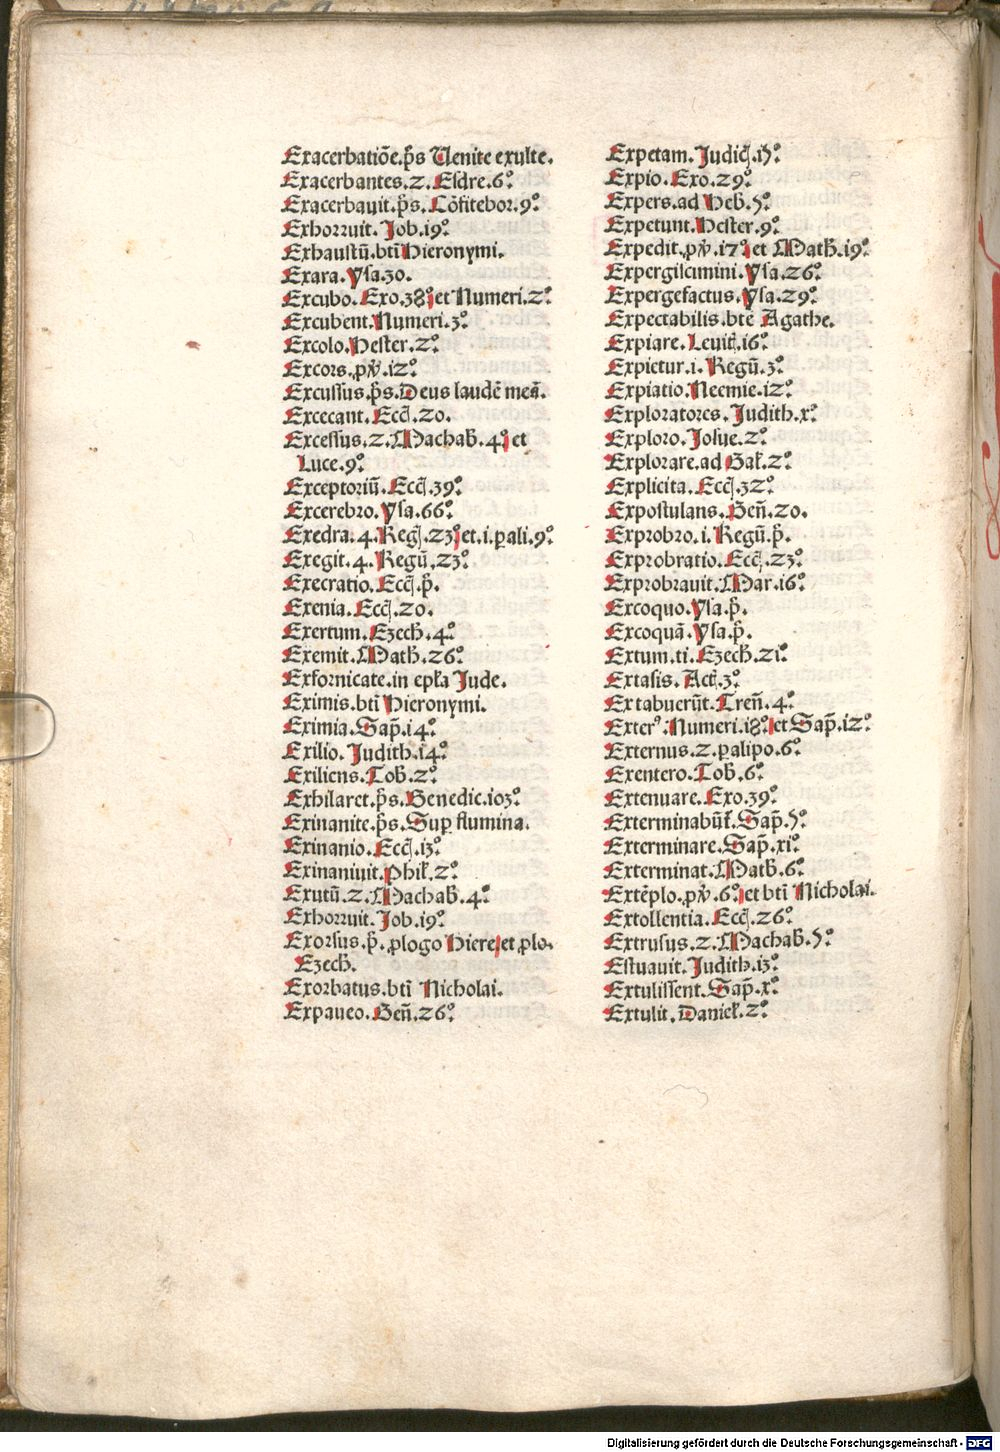 Exacerbatiōe.p̄s Uenite exulte.
Exacerbantes.2.Esdre.6°
Exacerbauit.p̄s.Cōfitebor.9°
Exhorruit.Job.19°
Exhaustū.bti̅ Hieronymi.
Exara.Ysa.30.
Excubo.Exo.38° et Numeri.2°
Excubent.Numeri.3°
Excolo.Hester.2°
Excors.ꝓv̄.12°
Excussus.p̄s.Deus laudē meā.
Excecant.Eccl̄.20.
Excessus.2.Machab̄.4° et
Luce.9°
Exceptoriū.Eccl̄.39°
Excerebro.Ysa.66°
Exedra.4.Reḡ.23° et.i.ꝑali.9°
Exegit.4.Regū.23°
Execratio.Eccl̄.p̄.
Exenia.Eccl̄.20.
Exertum.Ezech̄.4°
Exemit.Math̄.26°
Exfornicate.in epl̄a Jude.
Eximis.bti̅ Hieronymi.
Eximia.Sap̄.14°
Exilio.Judith.14°
Exiliens.Tob̄.2°
Exhilaret.p̄s.Benedic.103°
Exinanite.p̄s.Suꝑ flumina.
Exinanio.Eccl̄.13°
Exinaniuit.Phil̄.2°
Exutū.2.Machab̄.4°
Exhorruit.Job.19°
Exorsus.p̄.ꝓlogo Hiere et ꝓlo.
Ezech̄.
Exorbatus.bti̅ Nicholai.
Expaueo.Gen̄.26°
Expetam.Judic̄.15°
Expio.Exo.29°
Expers.ad Heb̄.5°
Expetunt.Hester.9°
Expedit.ꝓv̄.17° et Math̄.19°
Expergiscimini.Ysa.26°
Expergefactus.Ysa.29°
Expectabilis.btē Agathe.
Expiare.Leuit̄.16°
Expietur.i.Regū.3°
Expiatio.Neemie.12°
Exploratores.Judith.x°
Exploro.Josue.2°
Explorare.ad Gal̄.2°
Explicita.Eccl̄.32°
Expostulans.Gen̄.20.
Exprobro.i.Regū.p̄.
Exprobratio.Eccl̄.23°
Exprobrauit.Mar.16°
Excoquo.Ysa.p̄.
Excoquā.Ysa.p̄.
Extum.ti.Ezech̄.21°
Extasis.Act̄.3°
Extabuerūt.Tren̄.4°
Exterꝰ.Numeri.18° et Sap̄.12°
Externus.2.ꝑalipo.6°
Exentero.Tob̄.6°
Extenuare.Exo.39°
Exterminabūt̄.Sap̄.5°
Exterminare.Sap̄.xi°
Exterminat.Math̄.6°
Extēplo.ꝓv̄.6° et bti̅ Nicholai.
Extollentia.Eccl̄.26°
Extrusus.2.Machab̄.5°
Estuauit.Judith.13°
Extulissent.Sap̄.x°
Extulit.Daniel̄.2°
Digitalisierung gefördert durch die Deutsche Forschungsgemeinschaft - DFG